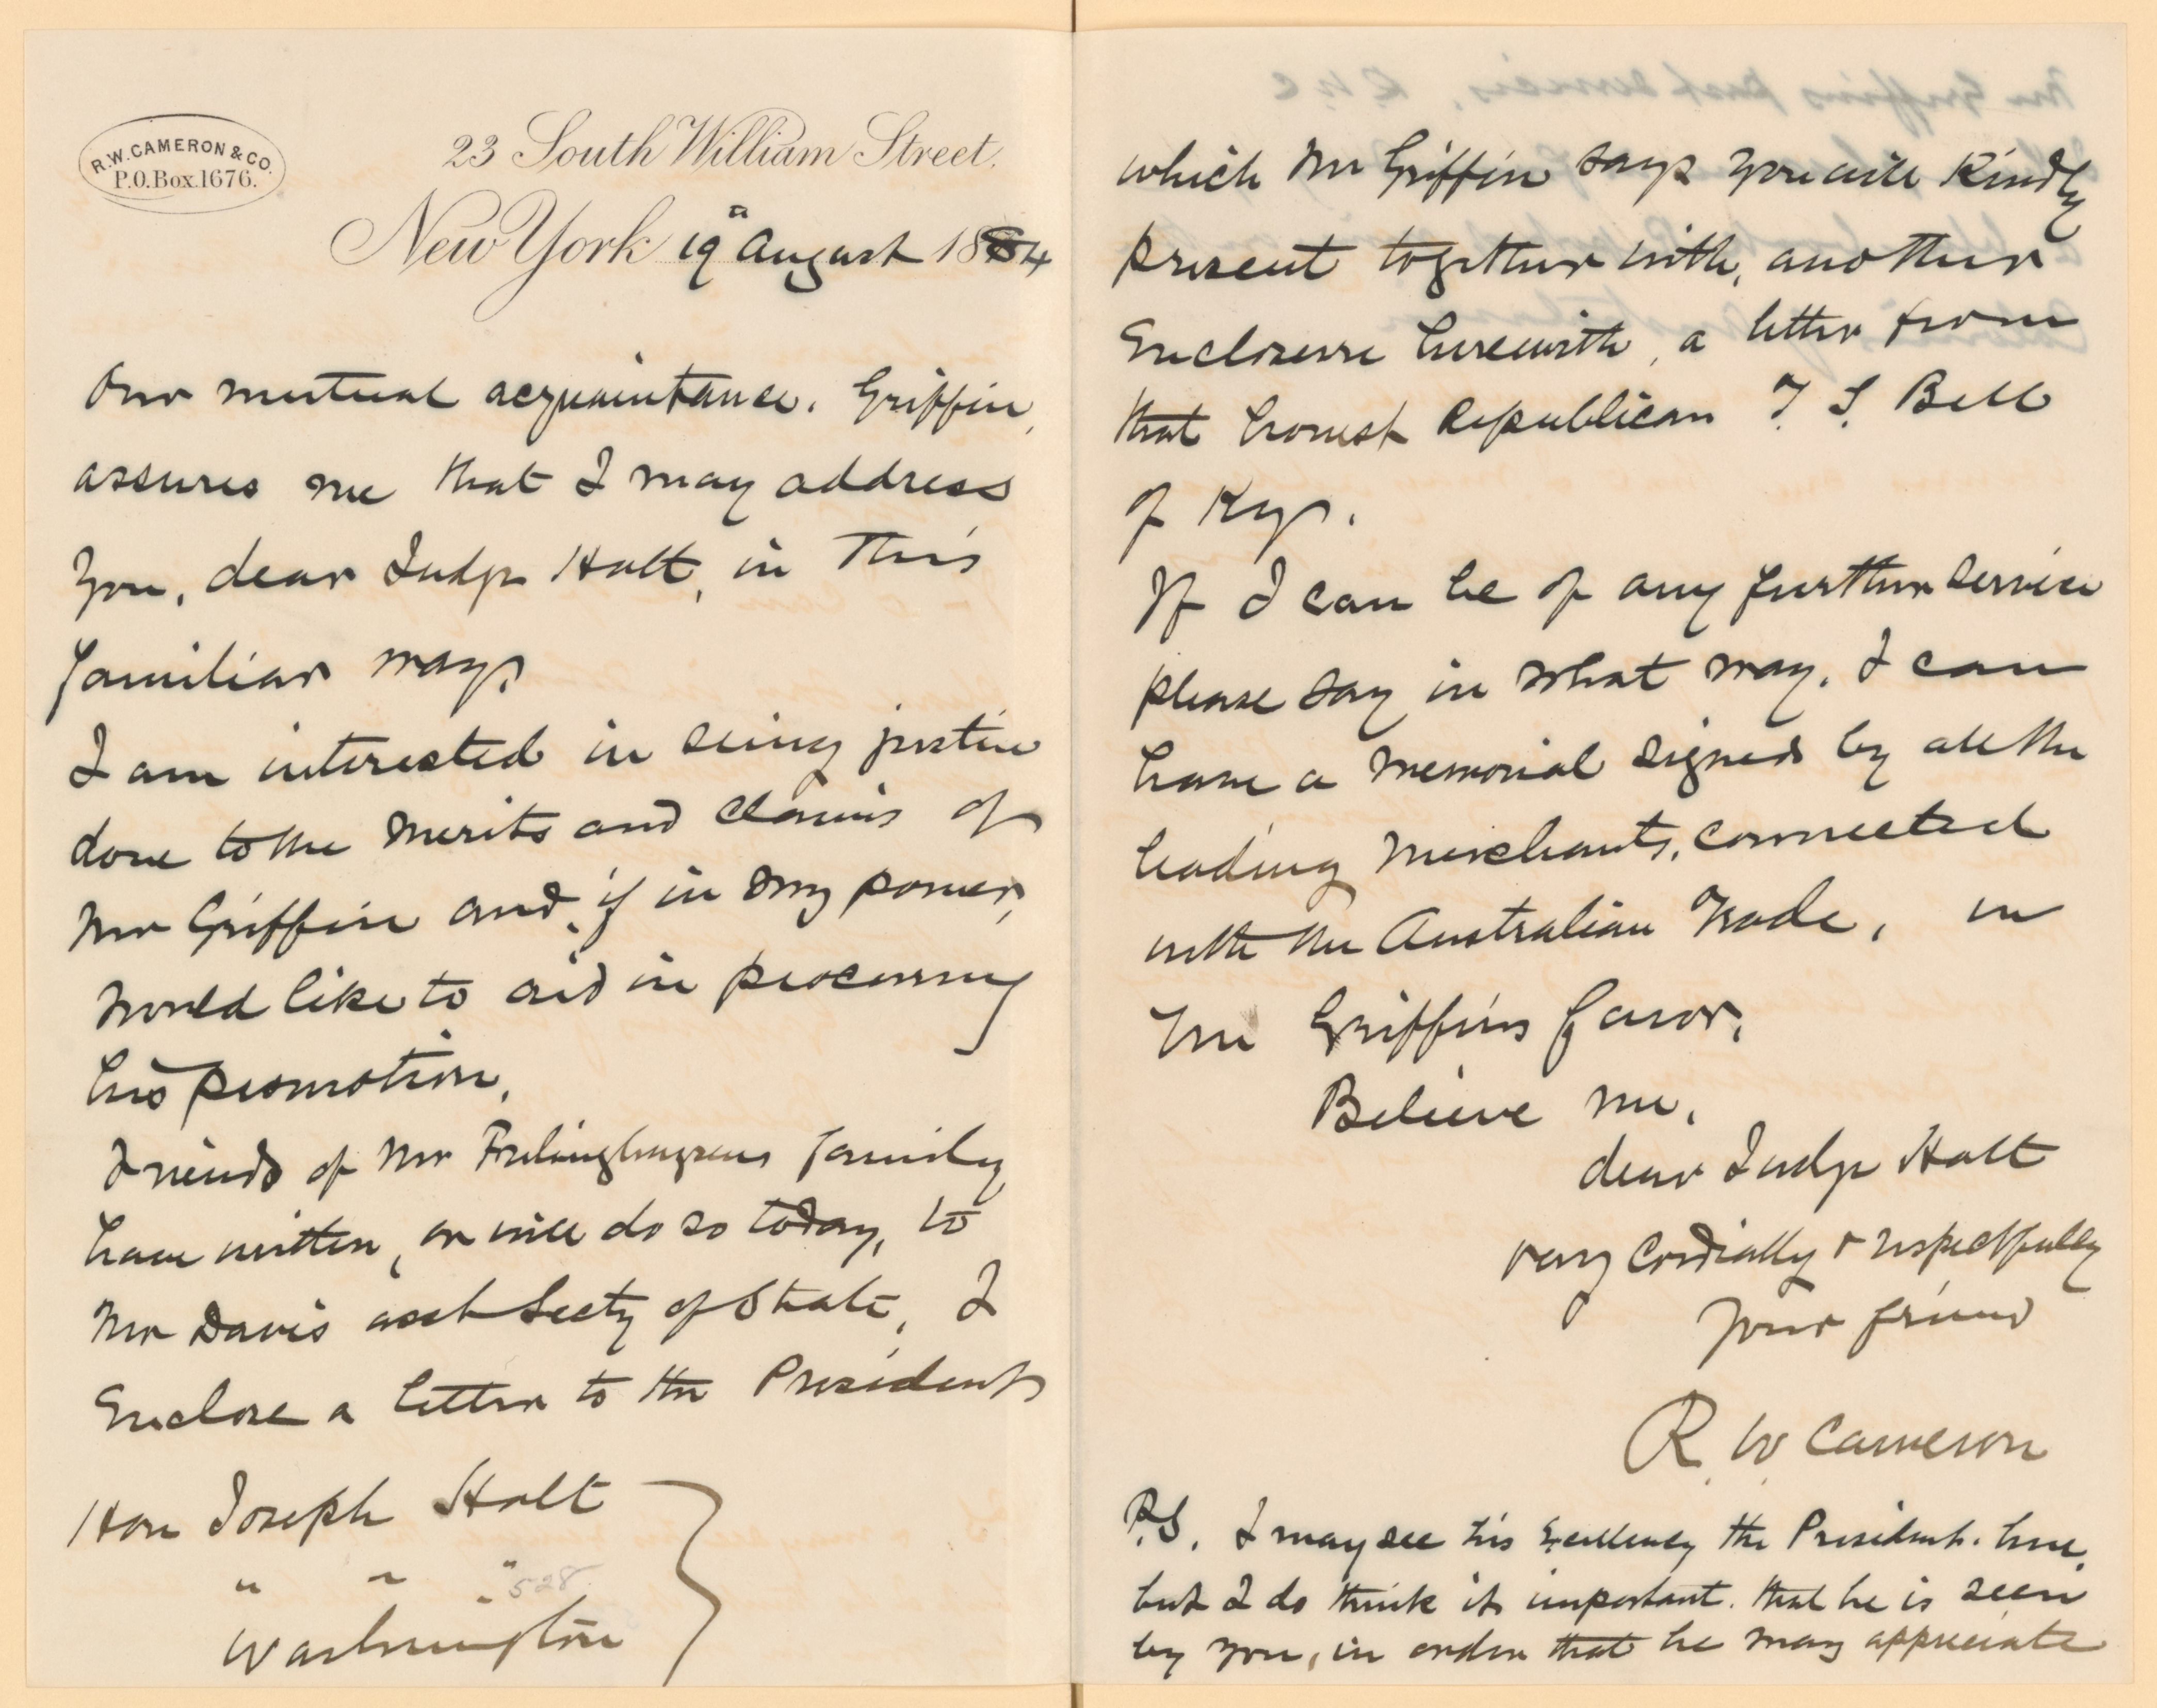 R.W. CAMERON & CO.
P.O. Box. 1676.
23 South William Street.
New York 19" August 1884
Our mutual acquaintance. Griffin,
assures me that I may address
you, dear Judge Holt, in this
familiar way.
I am interested in seeing justice
done to the merits and claims of
Mr Griffin and, if in my power,
would like to aid in procuring
his promotion.
Friends of Mr Frelinghuysens family
have written, or will do so today, to
Mr Davis asst Secty of State, I
Enclose a letter to the President
Hon Joseph Holt
" " "
528
Washington
which Mr Griffin says you will kindly
present together with, another
Enclosure herewith, a letter from
that honest Republican T. S. Bell
of Ky.
If I can be of any further service
please say in what way. I can
have a memorial signed by all the
leading merchants, connected
with the Australian Trade, in
Mr Griffins favor.
Believe me,
dear Judge Holt
very cordially & respectfully
your friend
R. W. Cameron
P.S. I may see his Excellency the President. here,
but I do think it important. that he is seen
by you, in order that he may appreciate
Mr Griffins past services. R W C